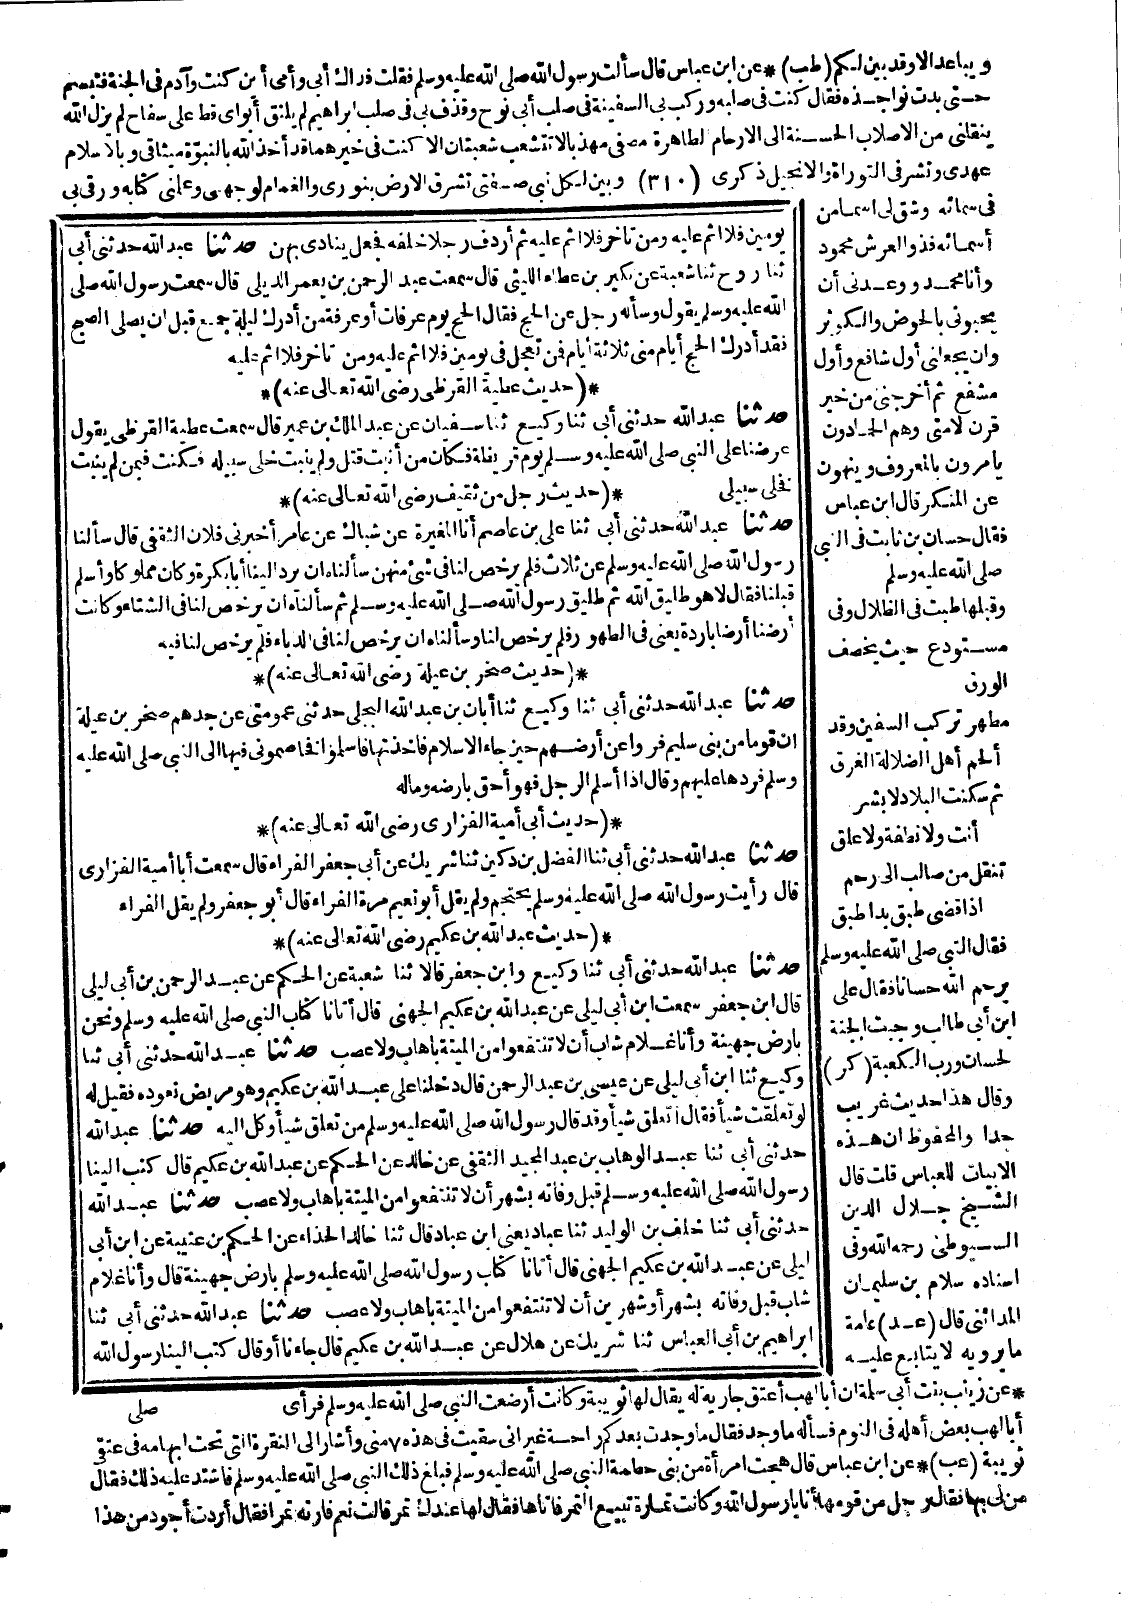 ويباعد الاوقد بين لكم (طب) * عن ابن عباس قال سألت رسول الله صلى الله عليه وسلم فقلت فداك أبي وأمي أين كنت وآدم في الجنة فتبسم
حتى بدت نواجذه فقال كنت في صلبه وركب بي السفينة في صلب أبي نوح وقذف بي في صلب ابراهيم لم يلتق أبواى قط على سفاح لم يزل الله
ينقلني من الاصلاب الحسنة الى الارحام لطاهرة مصفى مهذبا لا تتشعب شعبتان الا كنت في خيرهما قد أخذ الله بالنبوة ميثاقى وبالاسلام
عهدى ونشر في التوراة والانجيل ذكرى (٣١٠) وبين لكل نبي صفتى تشرق الارض بنورى والغمام لوجهى وعلمني كتابه ورقى بي
في سمائه وشق لى اسما من
أسمائه فذو العرش محمود
وأنا محمد ووعدنى أن
يحبونى بالحوض والكوثر
وان يجعلنى أول شافع وأول
مشفع ثم أخرجنى من خير
قرن لامتى وهم الحمادون
يامرون بالمعروف وينهون
عن المنكر قال ابن عباس
فقال حسان بن ثابت فى النبي
صلى الله عليه وسلم
وقبلها طبت فى الظلال وفى
مستودع حيث يخصف
الورق
مطهر تركب السفين وقد
ألجم أهل الضلالة الغرق
ثم سكنت البلاد لا بشر
أنت ولا نطفة ولا علق
تنقل من صالب الى رحم
اذا قضى طبق بدا طبق
فقال النبي صلى الله عليه وسلم
يرحم الله حسانا فقال على
ابن أبي طالب وجبت الجنة
لحسان ورب الكعبة (كر)
وقال هذا حديث غريب
جدا والمحفوظ ان هذه
الابيات للعباس قلت قال
الشيخ جلال الدين
السيوطى رحمه الله وفى
اسناده سلام بن سليمان
المدائنى قال (عد) عامة
ما يرويه لا يتابع عليه
يومين فلا اثم عليه ومن تاخر فلا اثم عليه ثم أردف رجلا خلفه فجعل ينادى بهن حدثنا عبدالله حدثنى أبي
ثنا روح ثنا شعبة عن بكير بن عطاء الليثى قال سمعت عبد الرحمن بن يعمر الديلى قال سمعت رسول الله صلى
الله عليه وسلم يقول وسأله رجل عن الحج فقال الحج يوم عرفات أو عرفة من أدرك ليلة جمع قبل ان يصلى الصبح
فقد أدرك الحج أيام منى ثلاثة أيام فمن تعجل فى يومين فلا اثم عليه ومن تاخر فلا اثم عليه
*(حديث عطية القرظى رضى الله تعالى عنه)*
حدثنا عبدالله حدثنى أبي ثنا وكيع ثنا سفيان عن عبد الملك بن عمير قال سمعت عطية القرظى يقول
عرضنا على النبي صلى الله عليه وسلم يوم قريظة فكان من أنبت قتل ولم ينبت خلى سبيله فكنت فيمن لم ينبت
فخلى سبيلى *(حديث رجل من ثقيف رضى الله تعالى عنه)*
حدثنا عبدالله حدثنى أبي ثنا على بن عاصم أنا المغيرة عن شباك عن عامر أخبرنى فلان الثقفى قال سألنا
رسول الله صلى الله عليه وسلم عن ثلاث فلم يرخص لنا فى شئ منهن سألناه ان يرد الينا أبا بكرة وكان مملوكا وأسلم
قبلنا فقال لا هو طليق الله ثم طليق رسول الله صلى الله عليه وسلم ثم سألناه ان يرخص لنا فى الشتاء وكانت
أرضنا أرضا باردة يعنى فى الطهور فلم يرخص لنا وسألناه ان يرخص لنا فى الدباء فلم يرخص لنا فيه
*(حديث صخر بن عيلة رضى الله تعالى عنه)*
حدثنا عبدالله حدثنى أبي ثنا وكيع ثنا أبان بن عبدالله البجلى حدثنى عمومتى عن جدهم صخر بن عيلة
ان قوما من بنى سليم فروا عن أرضهم حين جاء الاسلام فاخذتها فاسلموا فخاصمونى فيها الى النبي صلى الله عليه
وسلم فردها عليهم وقال اذا أسلم الرجل فهو أحق بارضه وماله
*(حديث أبي أمية الفزارى رضى الله تعالى عنه)*
حدثنا عبدالله حدثنى أبي ثنا الفضل بن دكين ثنا شريك عن أبي جعفر الفراء قال سمعت أبا أمية الفزارى
قال رأيت رسول الله صلى الله عليه وسلم يحتجم ولم يقل أبو نعيم مرة الفراء قال أبو جعفر ولم يقل الفراء
*(حديث عبدالله بن عكيم رضى الله تعالى عنه)*
حدثنا عبدالله حدثنى أبي ثنا وكيع وابن جعفر قالا ثنا شعبة عن الحكم عن عبد الرحمن بن أبي ليلى
قال ابن جعفر سمعت ابن أبي ليلى عن عبدالله بن عكيم الجهنى قال أتانا كتاب النبي صلى الله عليه وسلم ونحن
بارض جهينة وأنا غلام شاب أن لا تنتفعوا من الميتة باهاب ولا عصب حدثنا عبدالله حدثنى أبي ثنا
وكيع ثنا ابن أبي ليلى عن عيسى بن عبد الرحمن قال دخلنا على عبدالله بن عكيم وهو مريض نعوده فقيل له
لو تعلقت شيأ فقال أتعلق شيأ وقد قال رسول الله صلى الله عليه وسلم من تعلق شيأ وكل اليه حدثنا عبدالله
حدثنى أبي ثنا عبد الوهاب بن عبد المجيد الثقفى عن خالد عن الحكم عن عبدالله بن عكيم قال كتب الينا
رسول الله صلى الله عليه وسلم قبل وفاته بشهر أن لا تنتفعوا من الميتة باهاب ولا عصب حدثنا عبدالله
حدثنى أبي ثنا خلف بن الوليد ثنا عباد يعنى ابن عباد قال ثنا خالد الحذاء عن الحكم بن عتيبة عن ابن أبي
ليلى عن عبدالله بن عكيم الجهنى قال أتانا كتاب رسول الله صلى الله عليه وسلم بارض جهينة قال وأنا غلام
شاب قبل وفاته بشهر أو شهرين أن لا تنتفعوا من الميتة باهاب ولا عصب حدثنا عبدالله حدثنى أبي ثنا
ابراهيم بن أبي العباس ثنا شريك عن هلال عن عبدالله بن عكيم قال جاءنا أو قال كتب الينا رسول الله
صلى
* عن زينب بنت أبي سلمة ان أبا لهب أعتق جارية له يقال لها ثويبة وكانت أرضعت النبي صلى الله عليه وسلم فرأى
أبا لهب بعض أهله فى النوم فسأله ما وجد فقال ما وجدت بعدكم راحة غير انى سقيت فى هذه ٧ منى وأشار الى النقرة التى تحت ابهامه فى عتقى
ثويبة (عب) * عن ابن عباس قال هجت امرأة من بنى خطمة النبي صلى الله عليه وسلم فبلغ ذلك النبي صلى الله عليه وسلم فاشتد عليه ذلك فقال
من لى بها فقال رجل من قومها أنا يا رسول الله وكانت تمارة تبيع التمر فاتاها فقال لها عندك تمر قالت نعم فارته تمرا فقال أردت أجود من هذا